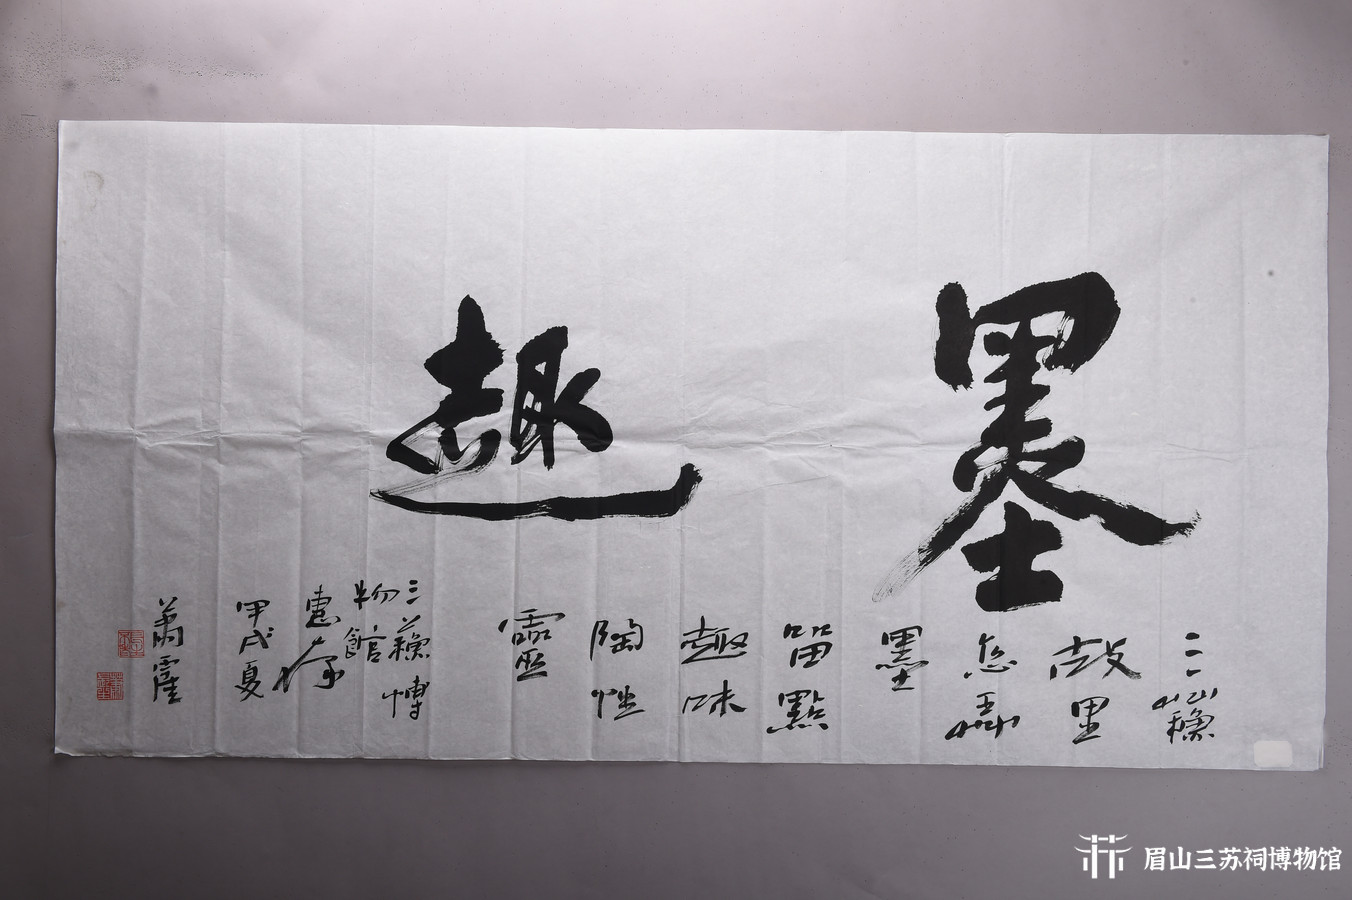 墨趣
三蘇
故里
忽弄
墨
留點
趣味
陶性
靈
三蘇博
物館
惠存
甲戌夏
蕭霍
眉山三苏祠博物馆